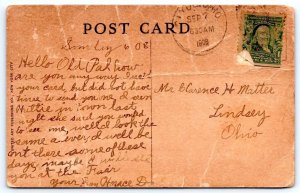 POST CARD
SEP 7
630AM
1908
6 08
Hello Old Pal how
are you any way I rec'd
your card, but did not have
time to send you one, I seen
Nettie in town last
night she said you wanted
to see me, well I look the
same as ever, I will be
out there some of these
days, maybe I will see
you at the Fair
your Horace D
Mr Clarence H Mitter
Lindsey
Ohio